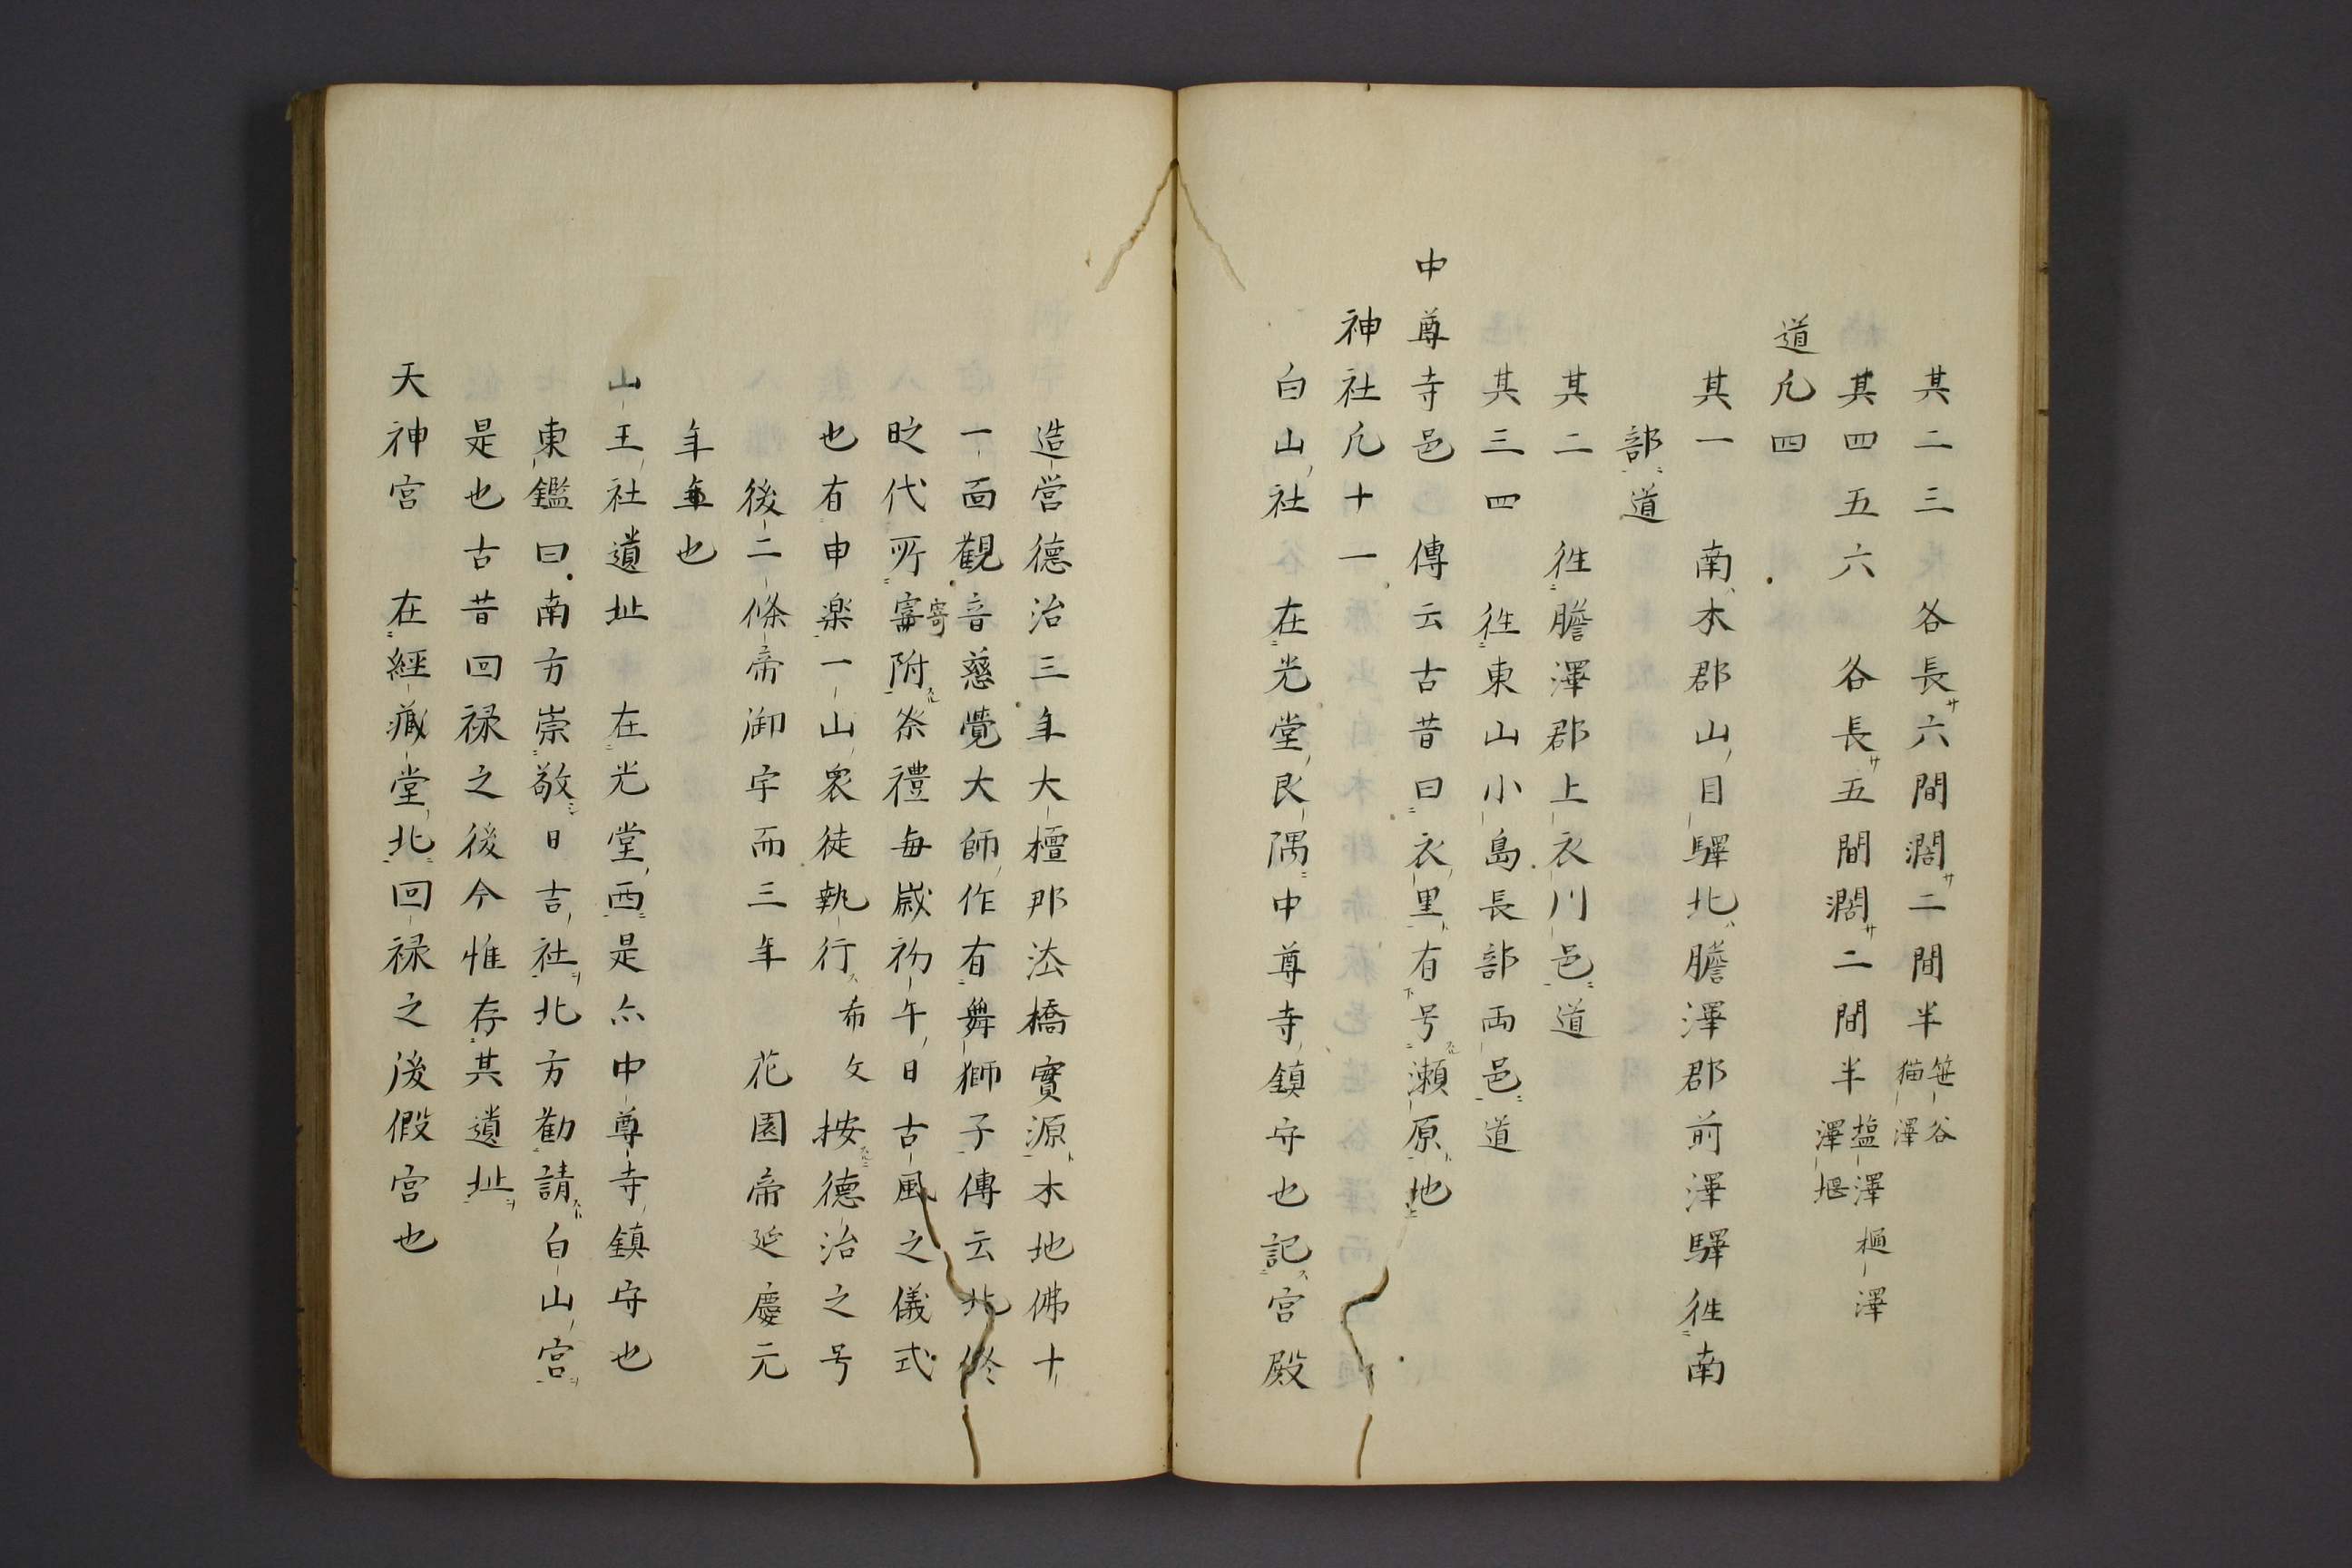 其二三 各長六間濶二間半 笹谷 猫澤
其四五六 各長五間濶二間半 塩澤 樋澤 澤堰
道凢四
其一 南木郡山目驛北膽澤郡前澤驛徃南
部道
其二 徃膽澤郡上衣川邑道
其三四 徃東山小島長部両邑道
中尊寺邑 傳云古昔曰衣里有号瀬原地
神社凢十一
白山社 在光堂艮隅中尊寺鎮守也記宮殿
造営德治三年大檀那法橋實源本地佛十
一面觀音慈覺大師作有舞獅子傳云北
旼代所寄附祭禮毎嵗初午日古風之儀式
也有申楽一山衆徒執行 布攵 按德治之号
後二條帝御宇而三年 花園帝延慶元
年年也
山王社遺址 在光堂西是亦中尊寺鎮守也
東鑑曰南方崇敬日吉社北方勸請白山宮
是也古昔回禄之後今惟存其遺址
天神宮 在經藏堂北回禄之後假宮也